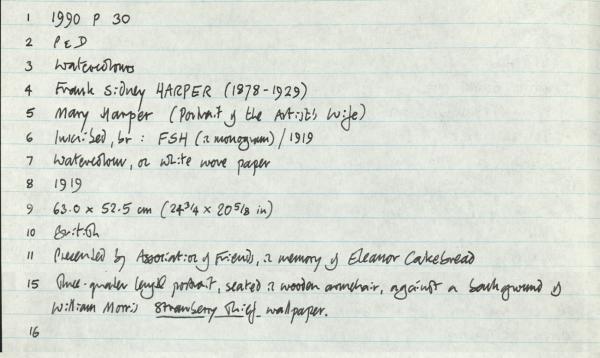 1 1990 P 30
2 P & D
3 Watercolours
4 Frank Sidney HARPER (1878-1929)
5 Mary Harper (Portrait of the Artist's Wife)
6 Inscribed, br : FSH (in monogram) / 1919
7 Watercolour, on white wove paper
8 1919
9 63.0 x 52.5 cm (24 3/4 x 20 5/8 in)
10 British
11 Presented by Association of Friends, in memory of Eleanor Cakebread
15 Three-quarter length portrait, seated in wooden armchair, against a background of
William Morris Strawberry Thief wallpaper.
16